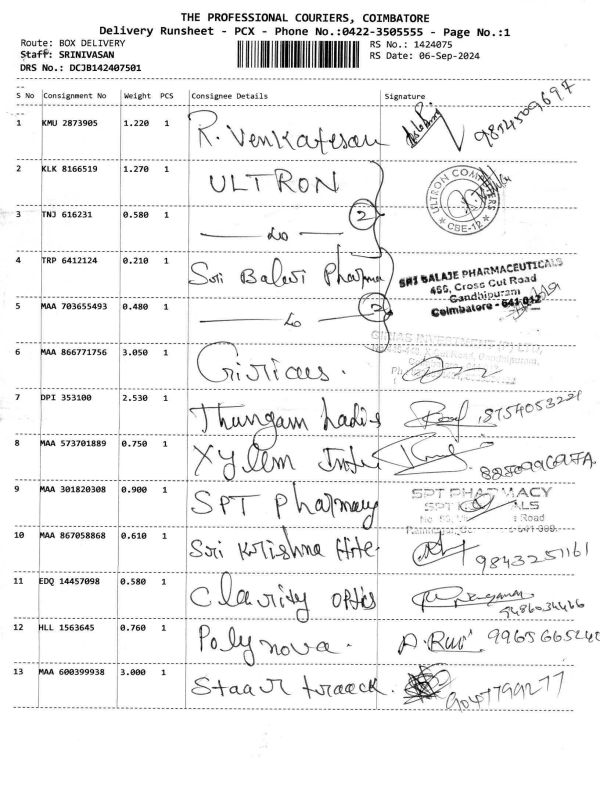 THE PROFESSIONAL COURIERS, COIMBATORE
Delivery Runsheet - PCX - Phone No.:0422-3505555 - Page No.:1
Route: BOX DELIVERY RS No.: 1424075
Staff: SRINIVASAN RS Date: 06-Sep-2024
DRS No.: DCJB142407501
S No Consignment No Weight PCS Consignee Details Signature
1 KMU 2873905 1.220 1 R. Venkatesan 9874509697
2 KLK 8166519 1.270 1 ULTRON ULTRON COMPUTERS CBE-12
3 TNJ 616231 0.580 1 — do — 2
4 TRP 6412124 0.210 1 Sri Balaji Pharma SRI BALAJE PHARMACEUTICALS
456, Cross Cut Road
Gandhipuram
Coimbatore - 641 012
5 MAA 703655493 0.480 1 — do — 2
6 MAA 866771756 3.050 1 Girias. GIRIAS INVESTMENT (P) LTD,
7 DPI 353100 2.530 1 Thangam Ladis 8754053221
8 MAA 573701889 0.750 1 Xylem
9 MAA 301820308 0.900 1 SPT Pharmacy SPT PHARMACY
10 MAA 867058868 0.610 1 Sri Krishna Hite 9843251161
11 EDQ 14457098 0.580 1 Clarity Optics 9486034466
12 HLL 1563645 0.760 1 Polynova. A. Ravi
13 MAA 600399938 3.000 1 Staar traack. 9047799277